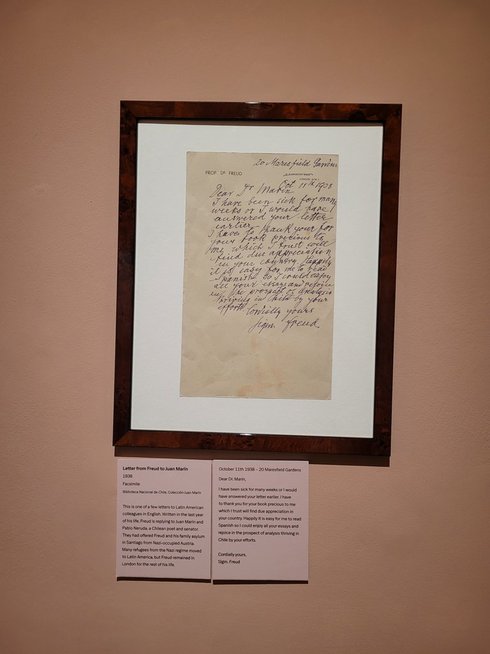 20 Maresfield Gardens
PROF. DR. FREUD
Oct 11th 1938
Dear Dr Marin
I have been sick for many
weeks or I would have
answered your letter
earlier.
I have to thank you for
your book precious to
me which I trust will
find due appreciation
in your country. Happily
it is easy for me to read
Spanish so I could enjoy
all your essays and rejoice
in the prospect of analysis
thriving in Chile by your
efforts.
Cordially yours
Sigm. Freud
Letter from Freud to Juan Marín
1938
Facsimile
Biblioteca Nacional de Chile, Colección Juan Marín
This is one of a few letters to Latin American
colleagues in English. Written in the last year
of his life, Freud is replying to Juan Marín and
Pablo Neruda, a Chilean poet and senator.
They had offered Freud and his family asylum
in Santiago from Nazi-occupied Austria.
Many refugees from the Nazi regime moved
to Latin America, but Freud remained in
London for the rest of his life.
October 11th 1938 – 20 Maresfield Gardens
Dear Dr. Marin,
I have been sick for many weeks or I would
have answered your letter earlier. I have
to thank you for your book precious to me
which I trust will find due appreciation in
your country. Happily it is easy for me to read
Spanish so I could enjoy all your essays and
rejoice in the prospect of analysis thriving in
Chile by your efforts.
Cordially yours,
Sigm. Freud